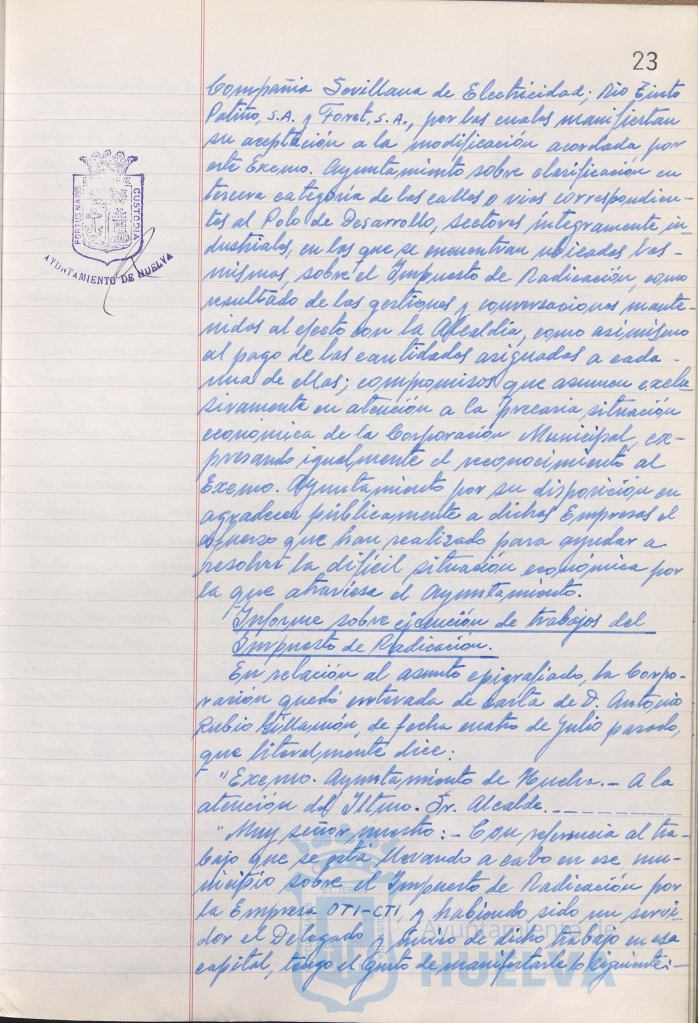 23
Compañia Sevillana de Electricidad; Rio Tinto
Patiño, S.A. y Foret, S.A., por las cuales manifiestan
su aceptación a la modificación acordada por
este Excmo. Ayuntamiento sobre clasificación en
tercera categoría de las calles o vias correspondien-
tes al Polo de Desarrollo, sectores íntegramente in-
dustriales, en las que se encuentran ubicadas las-
mismas, sobre el Impuesto de Radicación, como
resultado de las gestiones y conversaciones mante-
nidas al efecto con la Alcaldía, como asimismo
al pago de las cantidades asignadas a cada-
una de ellas; compromisos que asumen exclu-
sivamente en atención a la precaria situación
económica de la Corporación Municipal, ex-
presando igualmente el reconocimiento al
Excmo. Ayuntamiento por su disposición en
agradecer públicamente a dichas Empresas el
esfuerzo que han realizado para ayudar a
resolver la difícil situación económica por
la que atraviesa el Ayuntamiento.
Informe sobre ejecución de trabajos del
Impuesto de Radicación.
En relación al asunto epigrafiado, la Corpo-
ración quedó enterada de carta de D. Antonio
Rubio, de fecha cuatro de Julio pasado,
que literalmente dice:
"Excmo. Ayuntamiento de Huelva.- A la
atención del Iltmo. Sr. Alcalde.
"Muy señor nuestro:- Con referencia al tra-
bajo que se está llevando a cabo en ese mu-
nicipio sobre el Impuesto de Radicación por
la Empresa OTI-CTI, y habiendo sido un servi-
dor el Delegado y de dicho trabajo en esa
capital, tengo el gusto de manifestarle lo siguiente:-
PORTUS MARIS
CUSTODIA
AYUNTAMIENTO DE HUELVA
Ayuntamiento de
HUELVA